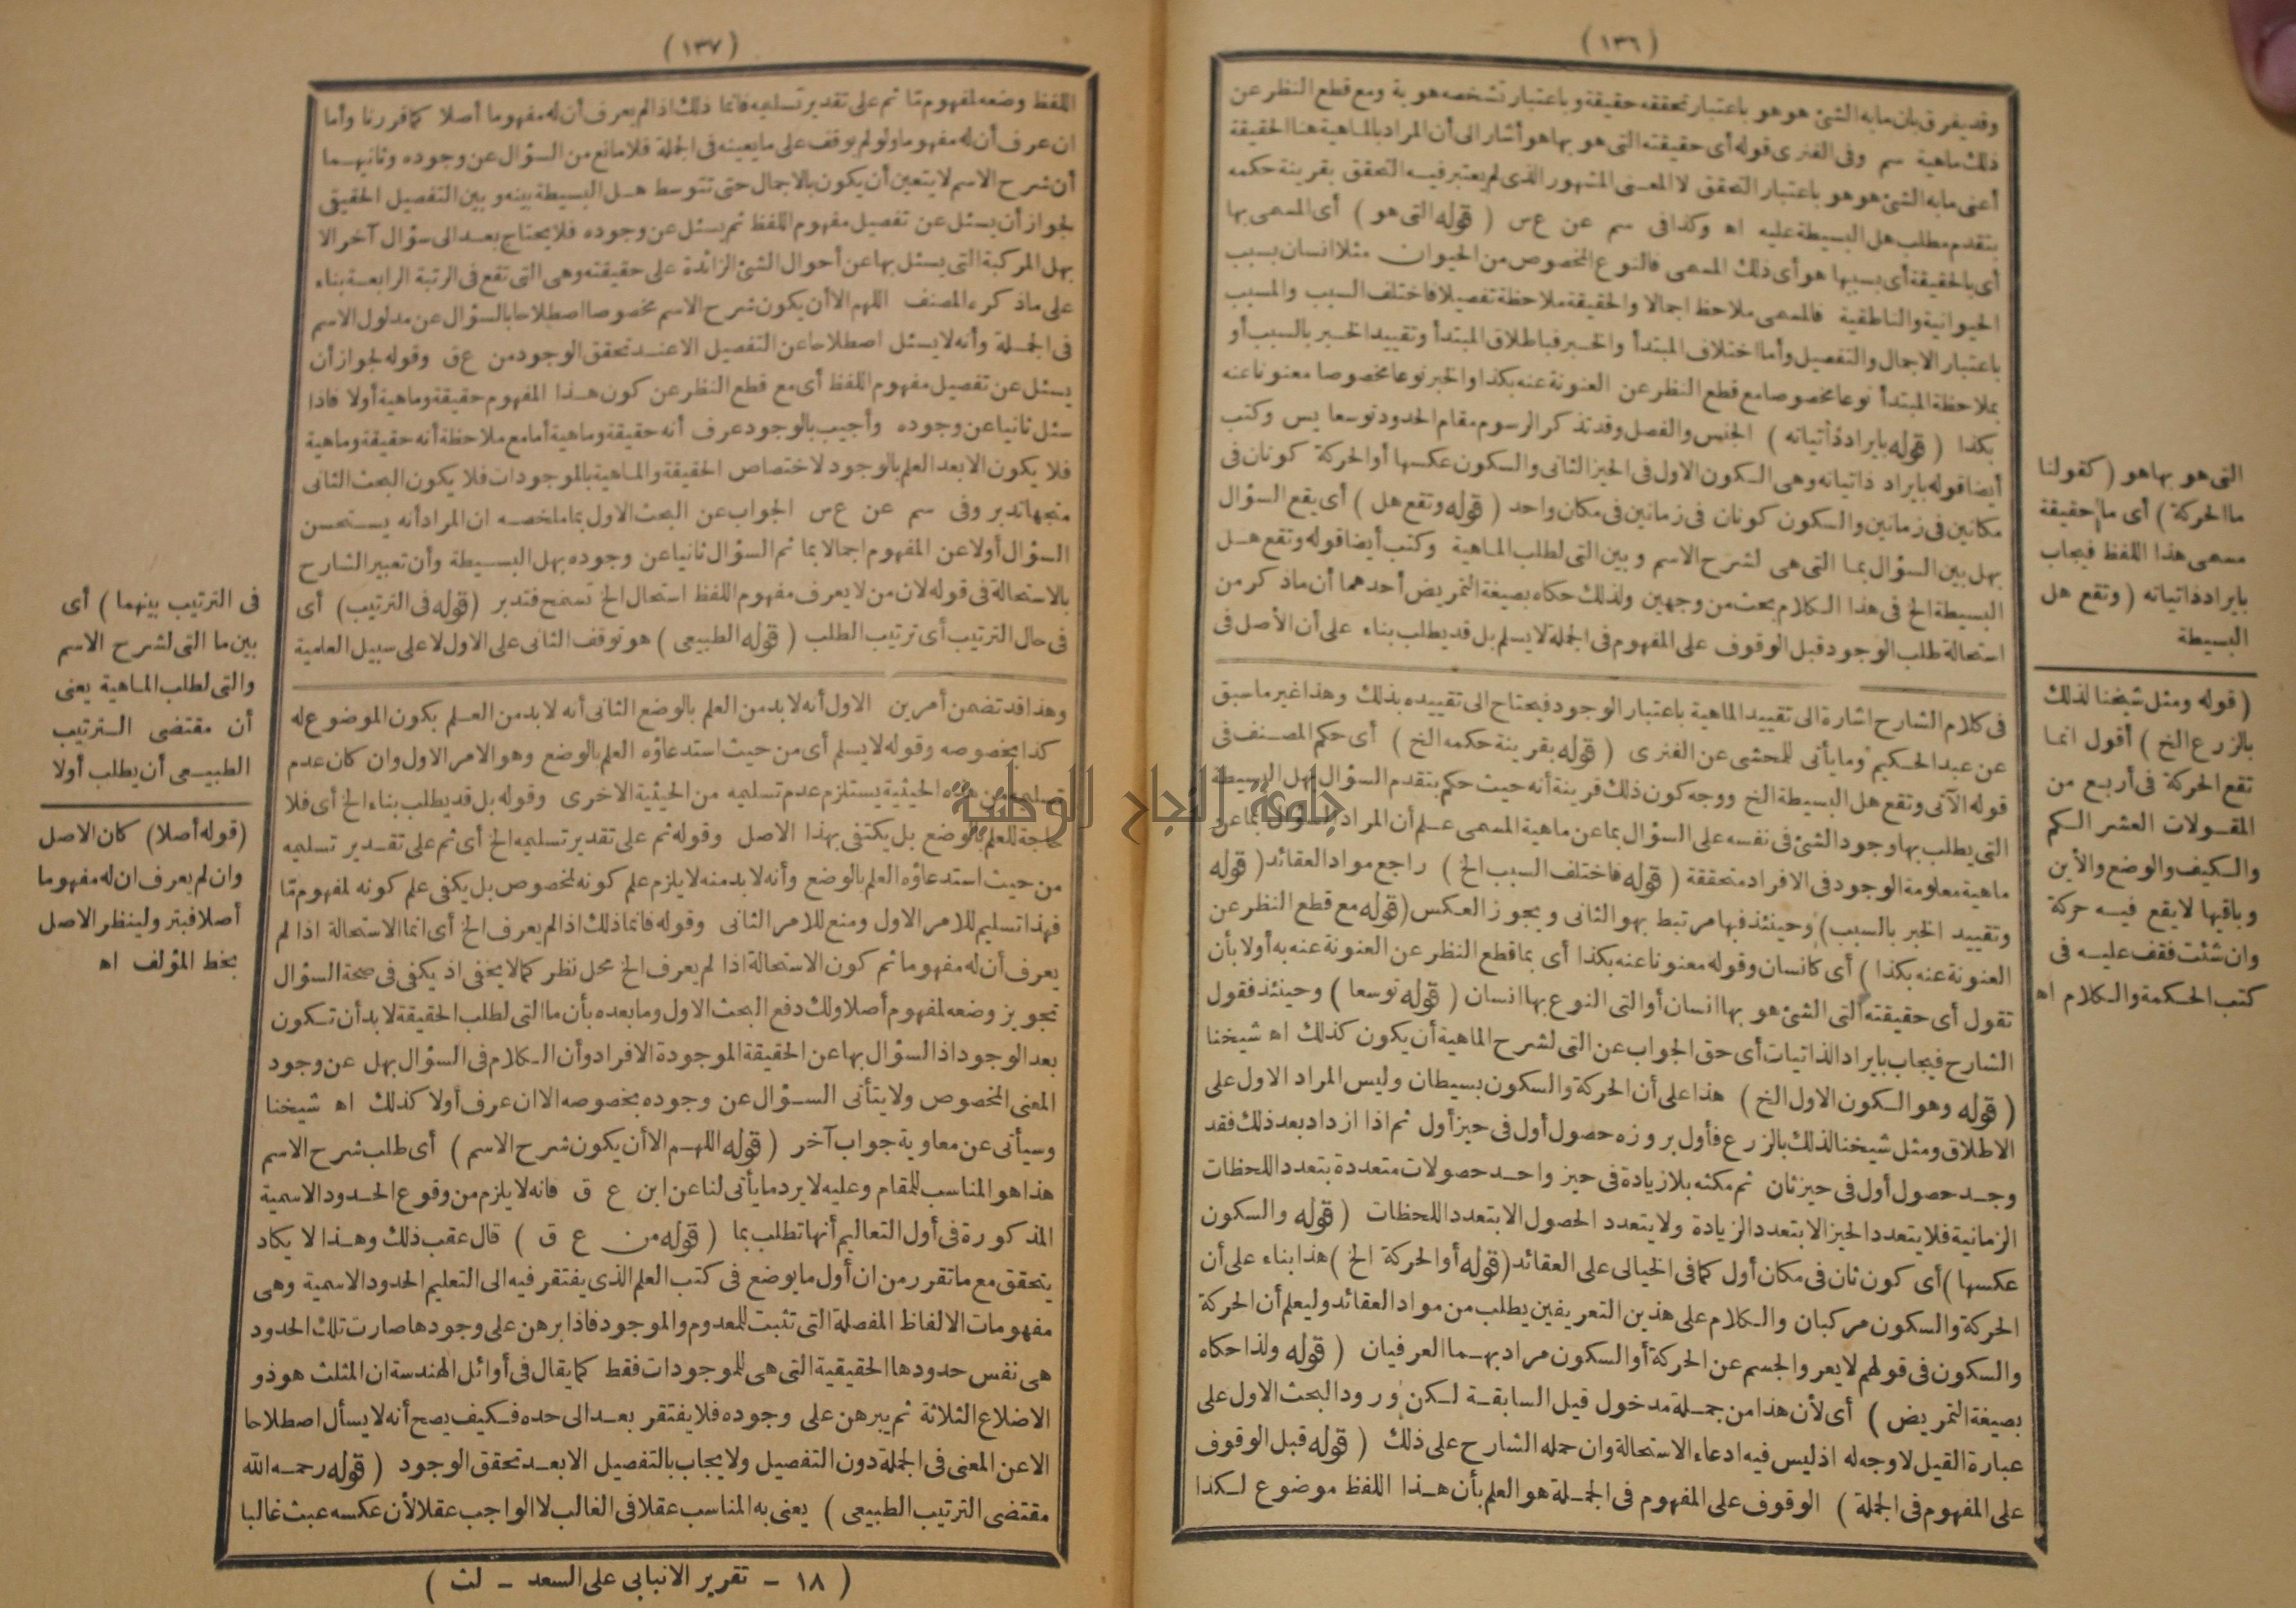 (١٣٦)
وقد يفرق بان مابه الشئ هو هو باعتبار تحققه حقيقة وباعتبار تشخصه هوية ومع قطع النظر عن
ذلك ماهية سم وفى الفنرى قوله أى حقيقته التى هو بها هو أشار الى أن المراد بالماهية هنا الحقيقة
أعنى مابه الشئ هو هو باعتبار التحقق لا المعنى المشهور الذى لم يعتبر فيه التحقق بقرينة حكمه
بتقدم مطلب هل البسيطة عليه اه وكذا فى سم عن ع س (قوله التى هو) أى المسمى بها
أى بالحقيقة أى بسببها هو أى ذلك المسمى فالنوع المخصوص من الحيوان مثلا انسان بسبب
الحيوانية والناطقية فالمسمى ملاحظ اجمالا والحقيقة ملاحظة تفصيلا فاختلف السبب والمسبب
باعتبار الاجمال والتفصيل وأما اختلاف المبتدأ والخبر فباطلاق المبتدأ وتقييد الخبر بالسبب أو
بملاحظة المبتدأ نوعا مخصوصا مع قطع النظر عن العنونة عنه بكذا والخبر نوعا مخصوصا معنونا عنه
بكذا (قوله بايراد ذاتياته) الجنس والفصل وقد تذكر الرسوم مقام الحدود توسعا يس وكتب
أيضا قوله بايراد ذاتياته وهى السكون الاول فى الحيز الثانى والسكون عكسها أو الحركة كونان فى
مكانين فى زمانين والسكون كونان فى زمانين فى مكان واحد (قوله وتقع هل) أى يقع السؤال
بهل بين السؤال بما التى هى لشرح الاسم وبين التى لطلب الماهية وكتب أيضا قوله وتقع هل
البسيطة الخ فى هذا الكلام بحث من وجهين ولذلك حكاه بصيغة التمريض أحدهما أن ماذكر من
استحالة طلب الوجود قبل الوقوف على المفهوم فى الجملة لا يسلم بل قد يطلب بناء على أن الأصل فى
التى هو بها هو (كقولنا
ما الحركة) أى ما حقيقة
مسمى هذا اللفظ فيجاب
بايراد ذاتياته (وتقع هل
البسيطة
فى كلام الشارح اشارة الى تقييد الماهية باعتبار الوجود فيحتاج الى تقييده بذلك وهذا غير ما سبق
عن عبد الحكيم وما يأتى للمحشى عن الفنرى (قوله بقرينة حكمه الخ) أى حكم المصنف فى
قوله الآتى وتقع هل البسيطة الخ ووجه كون ذلك قرينة أنه حيث حكم بتقدم السؤال بهل البسيطة
التى يطلب بها وجود الشئ فى نفسه على السؤال بما عن ماهية المسمى علم أن المراد السؤال بما عن
ماهية معلومة الوجود فى الافراد متحققة (قوله فاختلف السبب الخ) راجع مواد العقائد (قوله
وتقييد الخبر بالسبب) وحينئذ فبها مرتبط بهو الثانى ويجوز العكس (قوله مع قطع النظر عن
العنونة عنه بكذا) أى كانسان وقوله معنونا عنه بكذا أى بما قطع النظر عن العنونة عنه به أولا بأن
تقول أى حقيقته التى الشئ هو بها انسان أو التى النوع بها انسان (قوله توسعا) وحينئذ فقول
الشارح فيجاب بايراد الذاتيات أى حق الجواب عن التى لشرح الماهية أن يكون كذلك اه شيخنا
(قوله وهو السكون الاول الخ) هذا على أن الحركة والسكون بسيطان وليس المراد الاول على
الاطلاق ومثل شيخنا لذلك بالزرع فأول بروزه حصول أول فى حيز أول ثم اذا ازداد بعد ذلك فقد
وجد حصول أول فى حيز ثان ثم مكثه بلا زيادة فى حيز واحد حصولات متعددة بتعدد اللحظات
الزمانية فلا يتعدد الحيز الا بتعدد الزيادة ولا يتعدد الحصول الا بتعدد اللحظات (قوله والسكون
عكسها) أى كون ثان فى مكان أول كما فى الخيالى على العقائد (قوله أو الحركة الخ) هذا بناء على أن
الحركة والسكون مركبان والكلام على هذين التعريفين يطلب من مواد العقائد وليعلم أن الحركة
والسكون فى قولهم لا يعرو الجسم عن الحركة أو السكون مراد بهما العرفيان (قوله ولذا حكاه
بصيغة التمريض) أى لأن هذا من جملة مدخول قيل السابقة لكن ورود البحث الاول على
عبارة القيل لا وجه له اذ ليس فيه ادعاء الاستحالة وان حمله الشارح على ذلك (قوله قبل الوقوف
على المفهوم فى الجملة) الوقوف على المفهوم فى الجملة هو العلم بأن هذا اللفظ موضوع لكذا
(قوله ومثل شيخنا لذلك
بالزرع الخ) أقول انما
تقع الحركة فى أربع من
المقولات العشر الكم
والكيف والوضع والأين
وباقيها لا يقع فيه حركة
وان شئت فقف عليه فى
كتب الحكمة والكلام اه
(١٣٧)
اللفظ وضعه لمفهوم تا ثم على تقدير تسليمه فانما ذلك اذا لم يعرف أن له مفهوما أصلا كما قررنا وأما
ان عرف أن له مفهوما ولو لم يوقف على ما يعينه فى الجملة فلا مانع من السؤال عن وجوده وثانيهما
أن شرح الاسم لا يتعين أن يكون بالاجمال حتى تتوسط هل البسيطة بينه وبين التفصيل الحقيقى
لجواز أن يسئل عن تفصيل مفهوم اللفظ ثم يسئل عن وجوده فلا يحتاج بعد الى سؤال آخر الا
بهل المركبة التى يسئل بها عن أحوال الشئ الزائدة على حقيقته وهى التى تقع فى الرتبة الرابعة بناء
على ماذكره المصنف اللهم الا أن يكون شرح الاسم مخصوصا اصطلاحا بالسؤال عن مدلول الاسم
فى الجملة وأنه لا يسئل اصطلاحا عن التفصيل الا عند تحقق الوجود من ع ق وقوله لجواز أن
يسئل عن تفصيل مفهوم اللفظ أى مع قطع النظر عن كون هذا المفهوم حقيقة وماهية أولا فاذا
سئل ثانيا عن وجوده وأجيب بالوجود عرف أنه حقيقة وماهية أما مع ملاحظة أنه حقيقة وماهية
فلا يكون الا بعد العلم بالوجود لاختصاص الحقيقة والماهية بالموجودات فلا يكون البحث الثانى
متجها تدبر وفى سم عن ع س الجواب عن البحث الاول بما ملخصه ان المراد أنه يستحسن
السؤال أولا عن المفهوم اجمالا بما ثم السؤال ثانيا عن وجوده بهل البسيطة وأن تعبير الشارح
بالاستحالة فى قوله لان من لا يعرف مفهوم اللفظ استحال الخ تسمح فتدبر (قوله فى الترتيب) أى
فى حال الترتيب أى ترتيب الطلب (قوله الطبيعى) هو توقف الثانى على الاول لا على سبيل العلمية
فى الترتيب بينهما) أى
بين ما التى لشرح الاسم
والتى لطلب الماهية يعنى
أن مقتضى الترتيب
الطبيعى أن يطلب أولا
وهذا قد تضمن أمرين الاول أنه لا بد من العلم بالوضع الثانى أنه لا بد من العلم بكون الموضوع له
كذا بخصوصه وقوله لا يسلم أى من حيث استدعاؤه العلم بالوضع وهو الامر الاول وان كان عدم
تسليمه من هذه الحيثية يستلزم عدم تسليمه من الحيثية الاخرى وقوله بل قد يطلب بناء الخ أى فلا
حاجة للعلم بالوضع بل يكتفى بهذا الاصل وقوله ثم على تقدير تسليمه الخ أى ثم على تقدير تسليمه
من حيث استدعاؤه العلم بالوضع وأنه لا بد منه لا يلزم علم كونه لمخصوص بل يكفى علم كونه لمفهوم تا
فهذا تسليم للامر الاول ومنع للامر الثانى وقوله فانما ذلك اذا لم يعرف الخ أى انما الاستحالة اذا لم
يعرف أن له مفهوما ثم كون الاستحالة اذا لم يعرف الخ محل نظر كما لا يخفى اذ يكفى فى صحة السؤال
تجويز وضعه لمفهوم أصلا ولك دفع البحث الاول وما بعده بأن ما التى لطلب الحقيقة لا بد أن تكون
بعد الوجود اذ السؤال بها عن الحقيقة الموجودة الافراد وأن الكلام فى السؤال بهل عن وجود
المعنى المخصوص ولا يتأتى السؤال عن وجوده بخصوصه الا ان عرف أولا كذلك اه شيخنا
وسيأتى عن معاوية جواب آخر (قوله اللهم الا أن يكون شرح الاسم) أى طلب شرح الاسم
هذا هو المناسب للمقام وعليه لا يرد ما يأتى لنا عن ابن ع ق فانه لا يلزم من وقوع الحدود الاسمية
المذكورة فى أول التعاليم أنها تطلب بما (قوله من ع ق) قال عقب ذلك وهذا لا يكاد
يتحقق مع ما تقرر من ان أول ما يوضع فى كتب العلم الذى يفتقر فيه الى التعليم الحدود الاسمية وهى
مفهومات الالفاظ المفصلة التى تثبت للمعدوم والموجود فاذا برهن على وجودها صارت تلك الحدود
هى نفس حدودها الحقيقية التى هى للموجودات فقط كما يقال فى أوائل الهندسة ان المثلث هو ذو
الاضلاع الثلاثة ثم يبرهن على وجوده فلا يفتقر بعد الى حده فكيف يصح أنه لا يسأل اصطلاحا
الا عن المعنى فى الجملة دون التفصيل ولا يجاب بالتفصيل الا بعد تحقق الوجود (قوله رحمه الله
مقتضى الترتيب الطبيعى) يعنى به المناسب عقلا فى الغالب لا الواجب عقلا لأن عكسه عبث غالبا
(قوله أصلا) كان الاصل
وان لم يعرف ان له مفهوما
أصلا فبتر ولينظر الاصل
بخط المؤلف اه
(١٨ - تقرير الانبابى على السعد - لث)
جامعة النجاح الوطنية